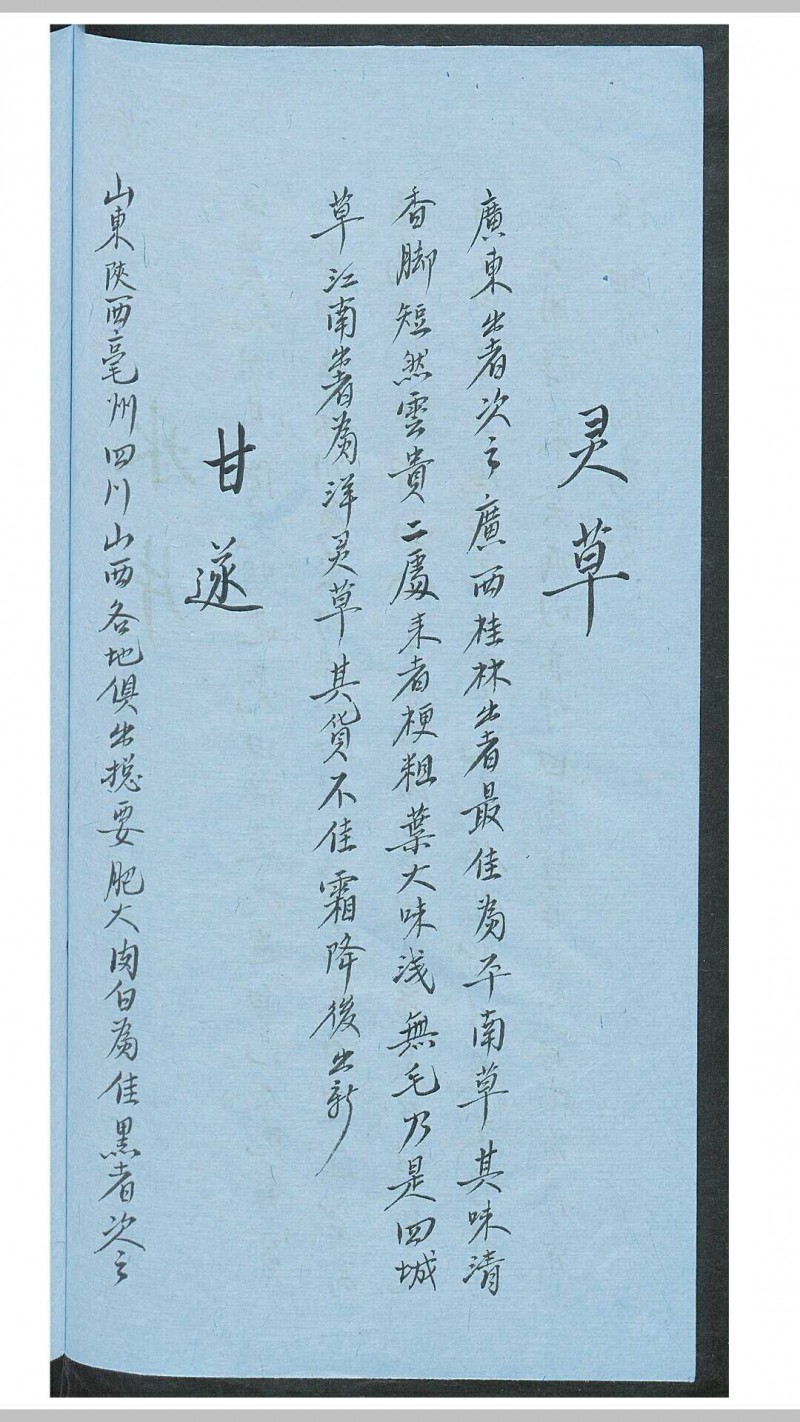 灵草
廣東出者次之廣西桂林出者最佳為平南草其味清
香脚短然雲貴二處来者梗粗葉大味浅無毛乃是四城
草江南出者為洋灵草其貨不佳霜降後出新
甘遂
山東陝西亳州四川山西各地俱出揔要肥大肉白為佳黒者次之